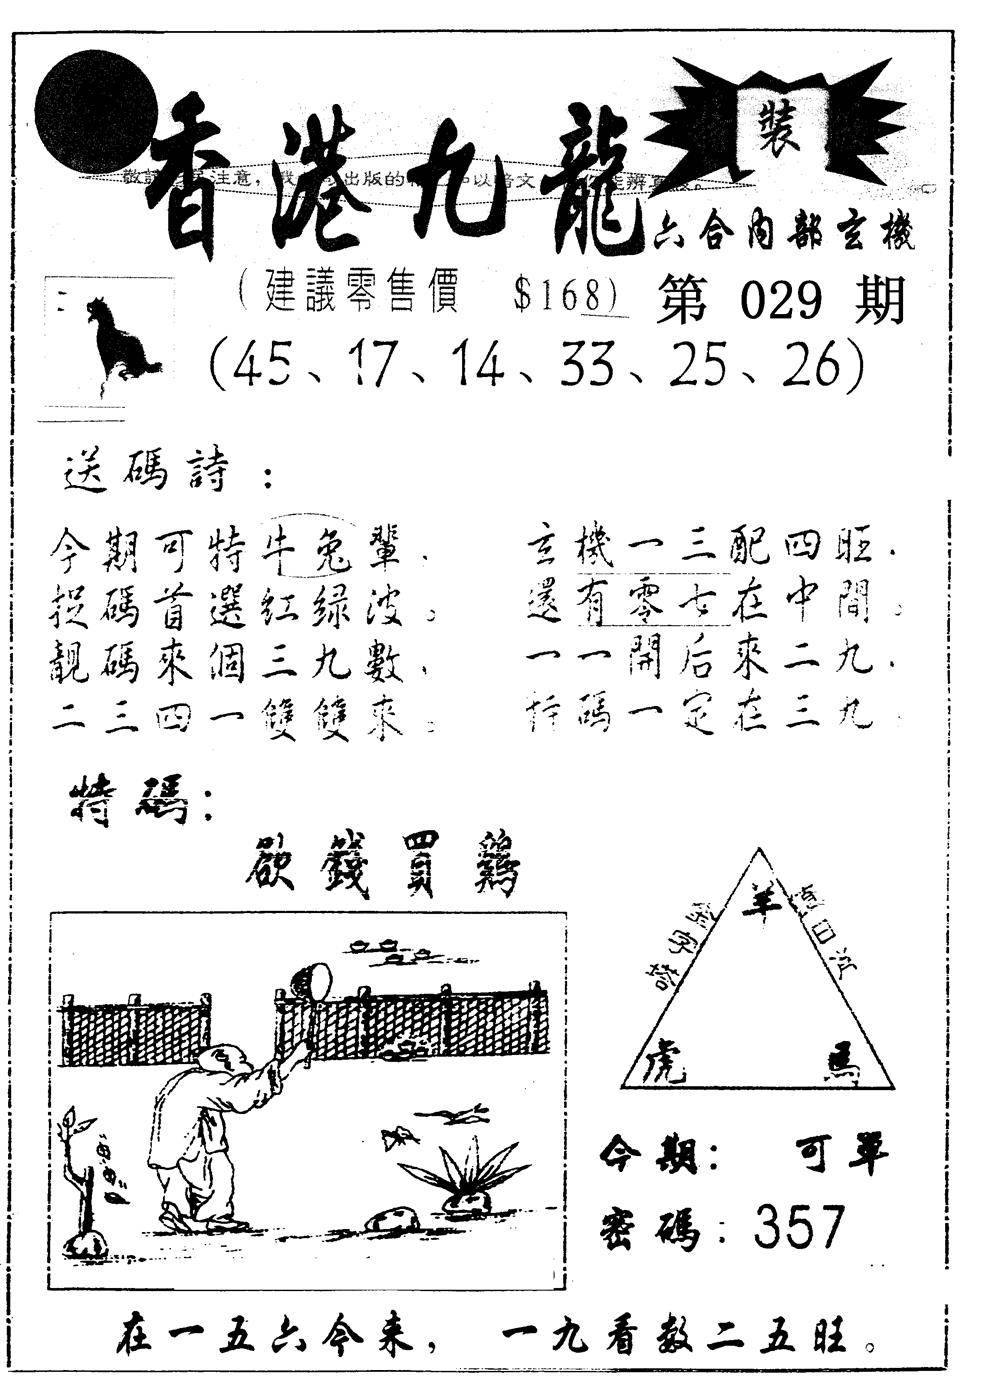 裝
香港九龍
注意，
出版的
六合內部玄機
(建議零售價 $168)
第 029 期
(45、17、14、33、25、26)
送碼詩：
今期可特牛兔輩，
捉碼首選紅绿波。
靚碼來個三九數，
二三四一雙雙來。
玄機一三配四旺，
還有零七在中間。
一一開后來二九，
特碼一定在三九，
特碼：
欲錢買鷄
金字塔
羊
虎
馬
今期： 可單
密碼：357
在一五六今来， 一九看数二五旺。